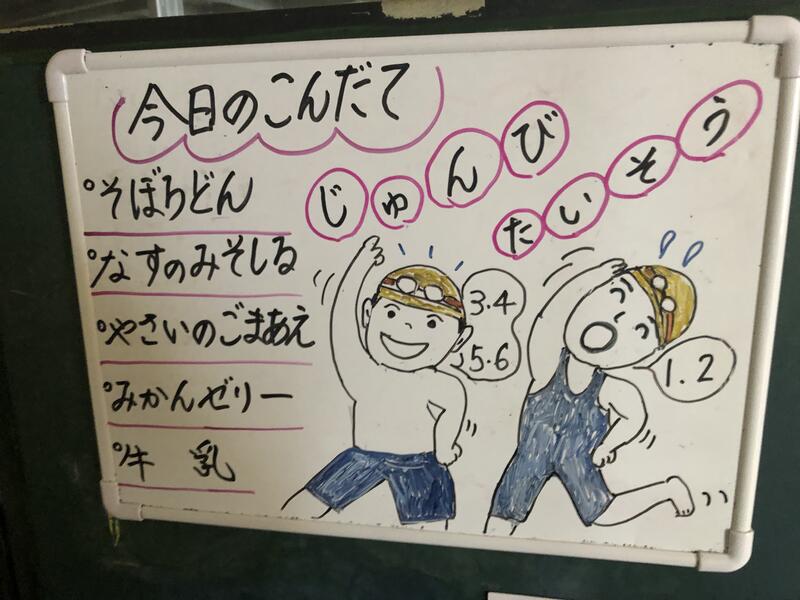 今日のこんだて
そぼろどん
なすのみそしる
やさいのごまあえ
みかんゼリー
牛 乳
じゅんび
たいそう
3.4
5.6
1.2